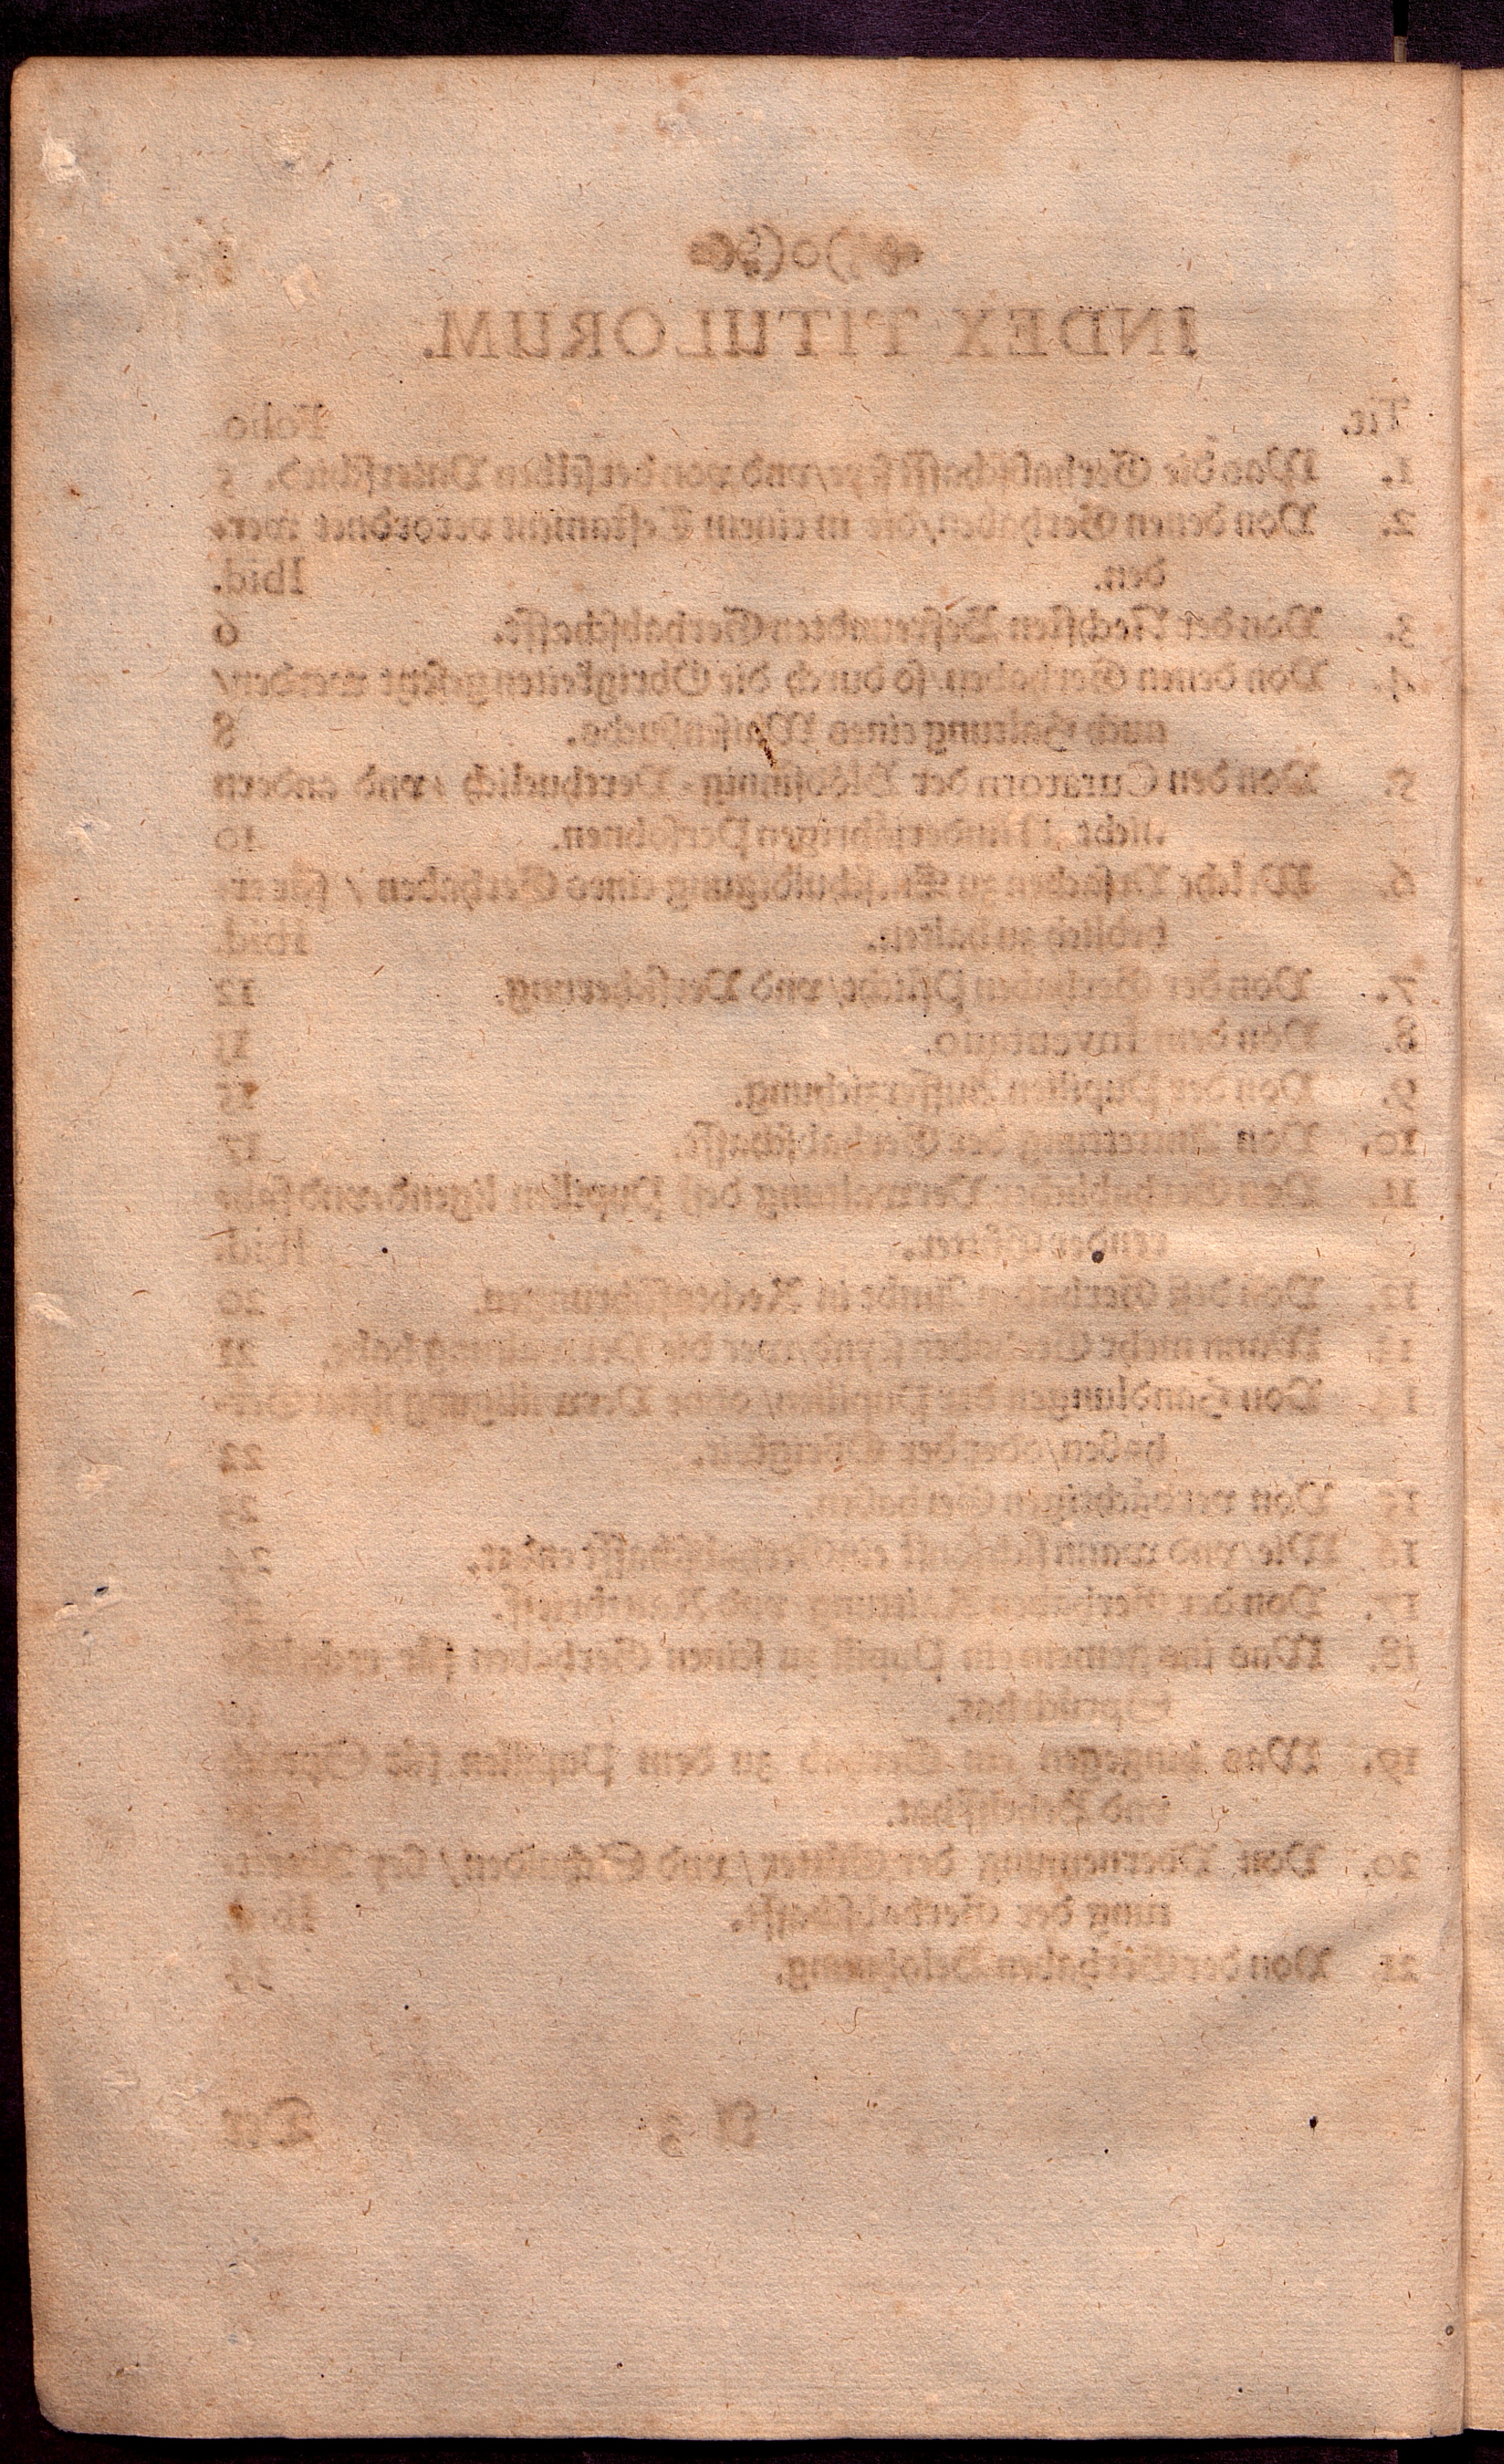 INDEX TITULORUM.
Tit. Folio
1. Was die Gerhabschafft seye/vnd von derselben Vnterschid. 5
2. Von denen Gerhaben/die in einem Testament verordnet wer-
den. Ibid.
3. Von der Nechsten Befreundten Gerhabschafft. 6
4. Von denen Gerhaben/so durch die Obrigkeiten gesetzt werden/
auch Haltung eines Waisenbuchs. 8
5. Von den Curatorn der Blödsinnig- Verthuelich /vnd andern
nicht Minderjährigen Persohnen. 10
6. Welche Vrsachen zu Entschuldigung eines Gerhaben / für er-
heblich zu halten. Ibid.
7. Von der Gerhaben Pflicht/vnd Versicherung. 12
8. Von dem Inventario. 13
9. Von der Pupillen Aufferziehung. 15
10. Von Antrettung der Gerhabschafft. 17
11. Von Gerhablicher Verwaltung deß Pupillen ligend-vnd fah-
render Gütter. Ibid.
12. Von deß Gerhaben Ambt in Rechtsführungen. 20
13. Wann mehr Gerhaber seynd/wer die Verwaltung habe. 21
Von Handlungen der Pupillen/ ohne Verwilligung ihrer Ger-
haben/oder der Obrigkeit. 22
15 Von verdächtigen Gerhaben. 23
16 Wie/vnd wann sich sonst ein Gerhabschafft endet. 24
17. Von der Gerhaben Raittung vnd
18. Was ins gemein ein Pupill zu seinen Gerhaben für
Spruch hat.
19. Was hingegen ein Gerhab zu dem Pupillen für Spruch
vnd Behelff hat.
20. Von der Gütter/vnd bey
rung der Gerhabschafft. Ibid.
21 Von der Gerhaben Belohnung. 34
A 3 Der